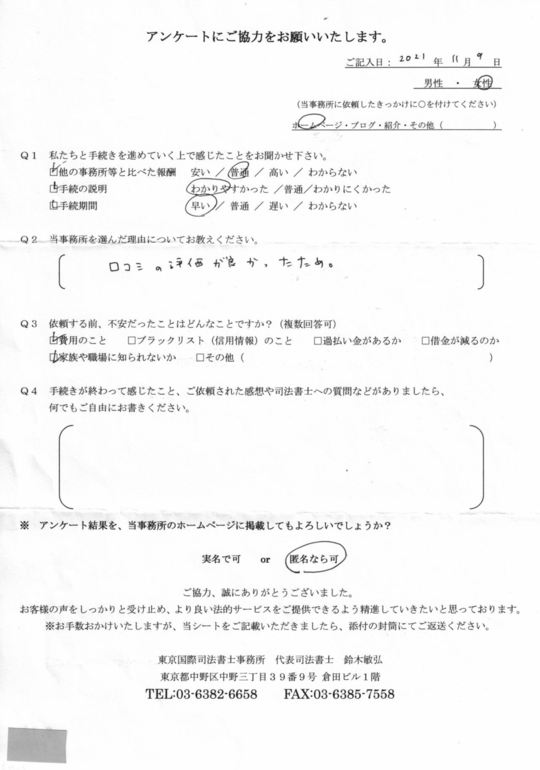 アンケートにご協力をお願いいたします。
ご記入日： 2021 年 11 月 9 日
男性 ・ 女性
（当事務所に依頼したきっかけに○を付けてください）
ホームページ・ブログ・紹介・その他（ ）
Q１ 私たちと手続きを進めていく上で感じたことをお聞かせ下さい。
□他の事務所等と比べた報酬 安い ／ 普通 ／ 高い ／ わからない
□手続の説明 わかりやすかった ／普通／わかりにくかった
□手続期間 早い ／ 普通 ／ 遅い ／ わからない
Q２ 当事務所を選んだ理由についてお教えください。
口コミの評価が良かったため。
Q３ 依頼する前、不安だったことはどんなことですか？（複数回答可）
□費用のこと □ブラックリスト（信用情報）のこと □過払い金があるか □借金が減るのか
□家族や職場に知られないか □その他（ ）
Q４ 手続きが終わって感じたこと、ご依頼された感想や司法書士への質問などがありましたら、
何でもご自由にお書きください。
※ アンケート結果を、当事務所のホームページに掲載してもよろしいでしょうか？
実名で可 or 匿名なら可
ご協力、誠にありがとうございました。
お客様の声をしっかりと受け止め、より良い法的サービスをご提供できるよう精進していきたいと思っております。
※お手数おかけいたしますが、当シートをご記載いただきましたら、添付の封筒にてご返送ください。
東京国際司法書士事務所 代表司法書士 鈴木敏弘
東京都中野区中野三丁目３９番９号 倉田ビル１階
TEL:03-6382-6658 FAX:03-6385-7558